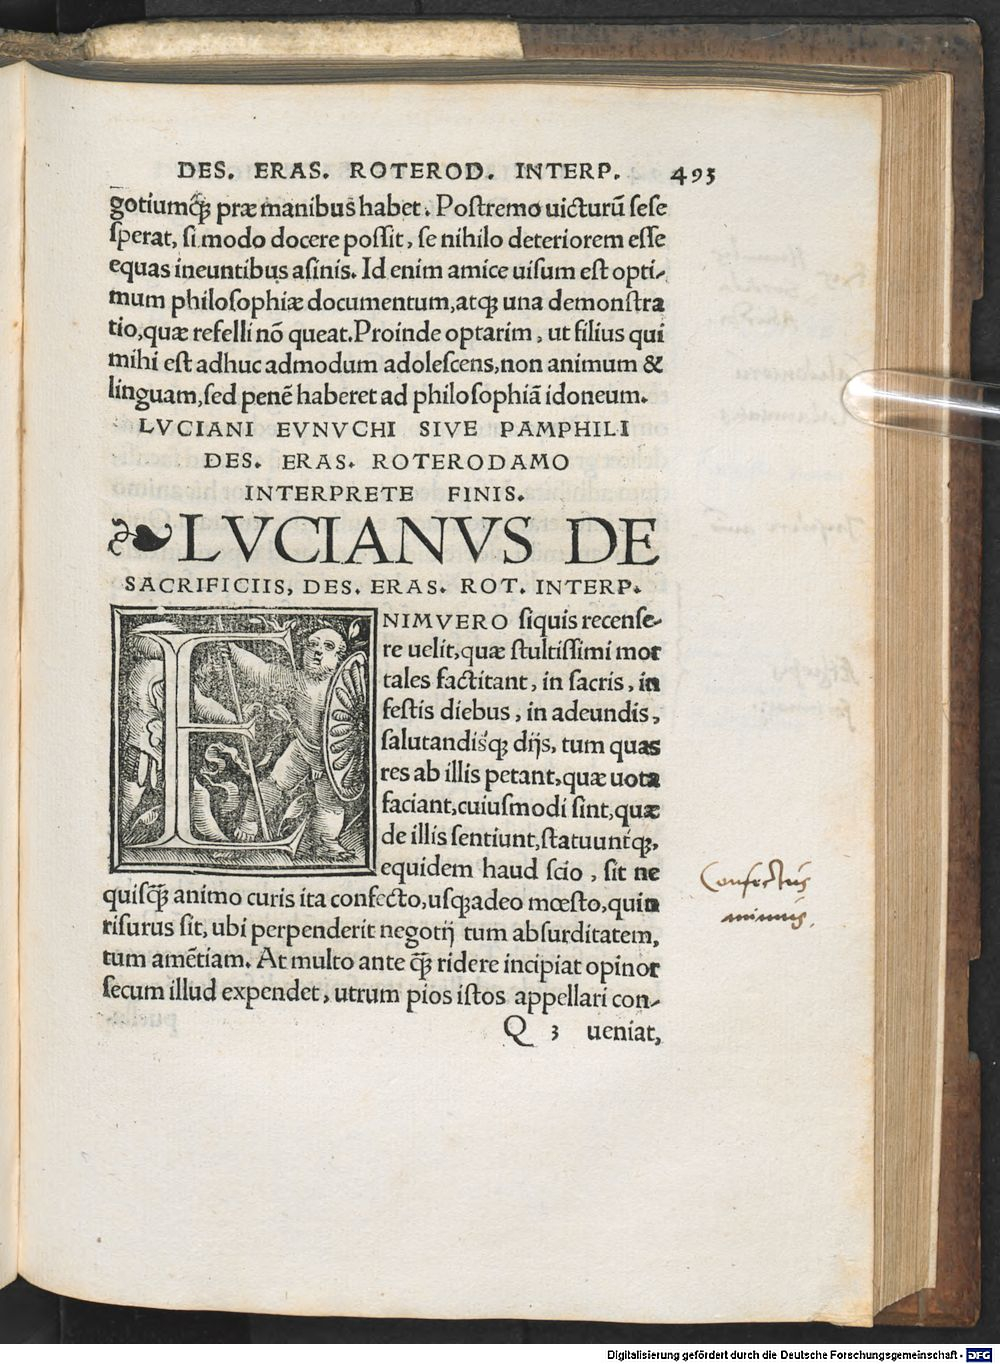 DES. ERAS. ROTEROD. INTERP. 493
gotiumq́ꝫ præ manibus habet. Poſtremo uicturũ ſeſe
ſperat, ſi modo docere poſſit, ſe nihilo deteriorem eſſe
equas ineuntibus aſinis. Id enim amice uiſum eſt opti-
mum philoſophiæ documentum, atqꝫ una demonſtra
tio, quæ refelli nõ queat. Proinde optarim, ut filius qui
mihi eſt adhuc admodum adoleſcens, non animum &
linguam, ſed penẽ haberet ad philoſophiã idoneum.
LVCIANI EVNVCHI SIVE PAMPHILI
DES. ERAS. ROTERODAMO
INTERPRETE FINIS.
❧LVCIANVS DE
SACRIFICIIS, DES. ERAS. ROT. INTERP.
ENIMVERO ſiquis recenſe-
re uelit, quæ ſtultiſſimi mor
tales factitant, in ſacris, in
feſtis diebus, in adeundis,
ſalutandiśqꝫ dijs, tum quas
res ab illis petant, quæ uota
faciant, cuiuſmodi ſint, quæ
de illis ſentiunt, ſtatuunt́qꝫ,
equidem haud ſcio, ſit ne
quiſq̃ꝫ animo curis ita confecto, uſqꝫadeo mœſto, quin
riſurus ſit, ubi perpenderit negotij tum abſurditatem,
tum amẽtiam. At multo ante q̃ꝫ ridere incipiat opinor
ſecum illud expendet, utrum pios iſtos appellari con-
Q 3 ueniat,
Confectus
animus.
Digitalisierung gefördert durch die Deutsche Forschungsgemeinschaft - DFG